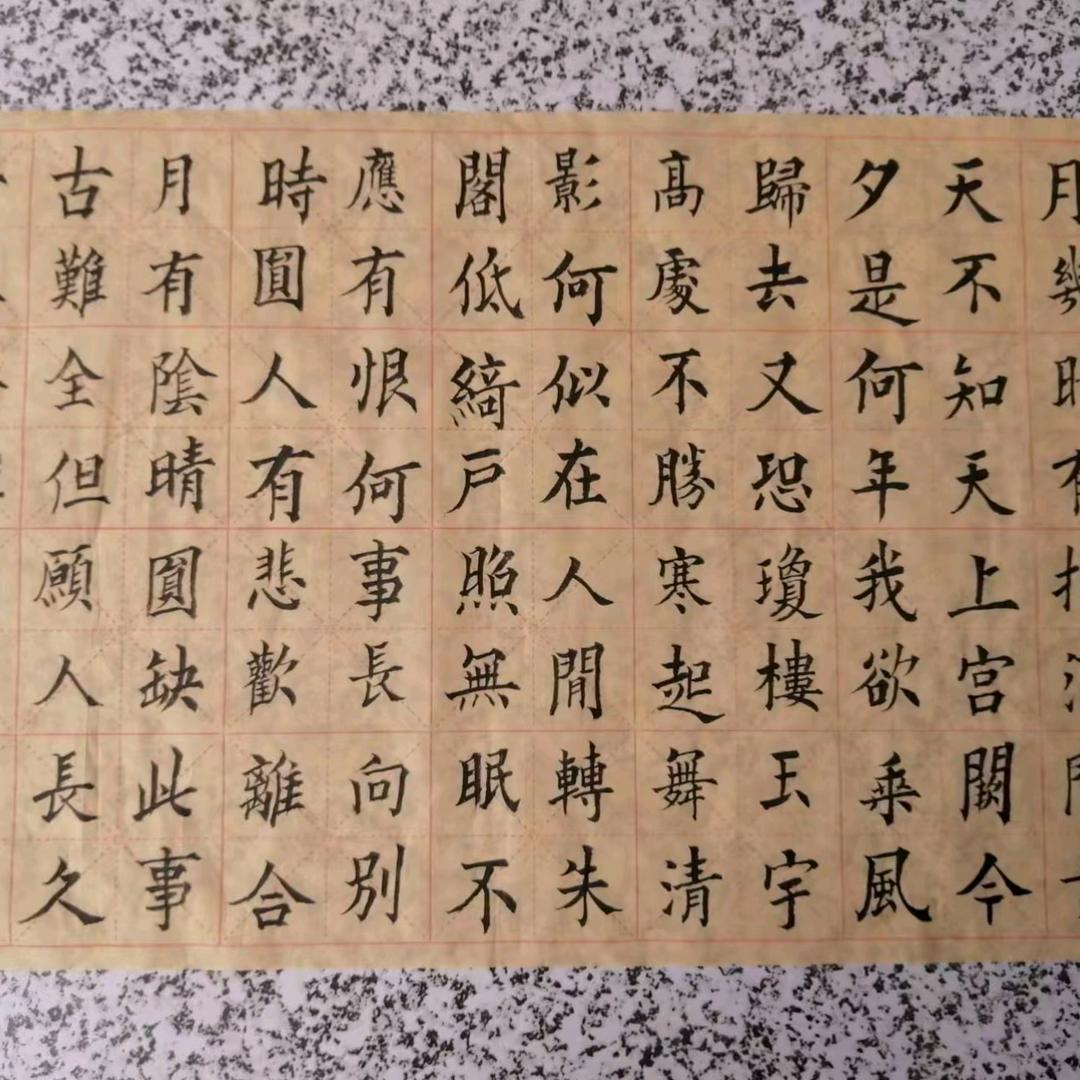 月幾
天不知天上宫闕今
夕是何年我欲乘風
歸去又恐瓊樓玉宇
髙處不勝寒起舞清
影何似在人閒轉朱
閣低綺戶照無眠不
應有恨何事長向別
時圓人有悲歡離合
月有陰晴圓缺此事
古難全但願人長久